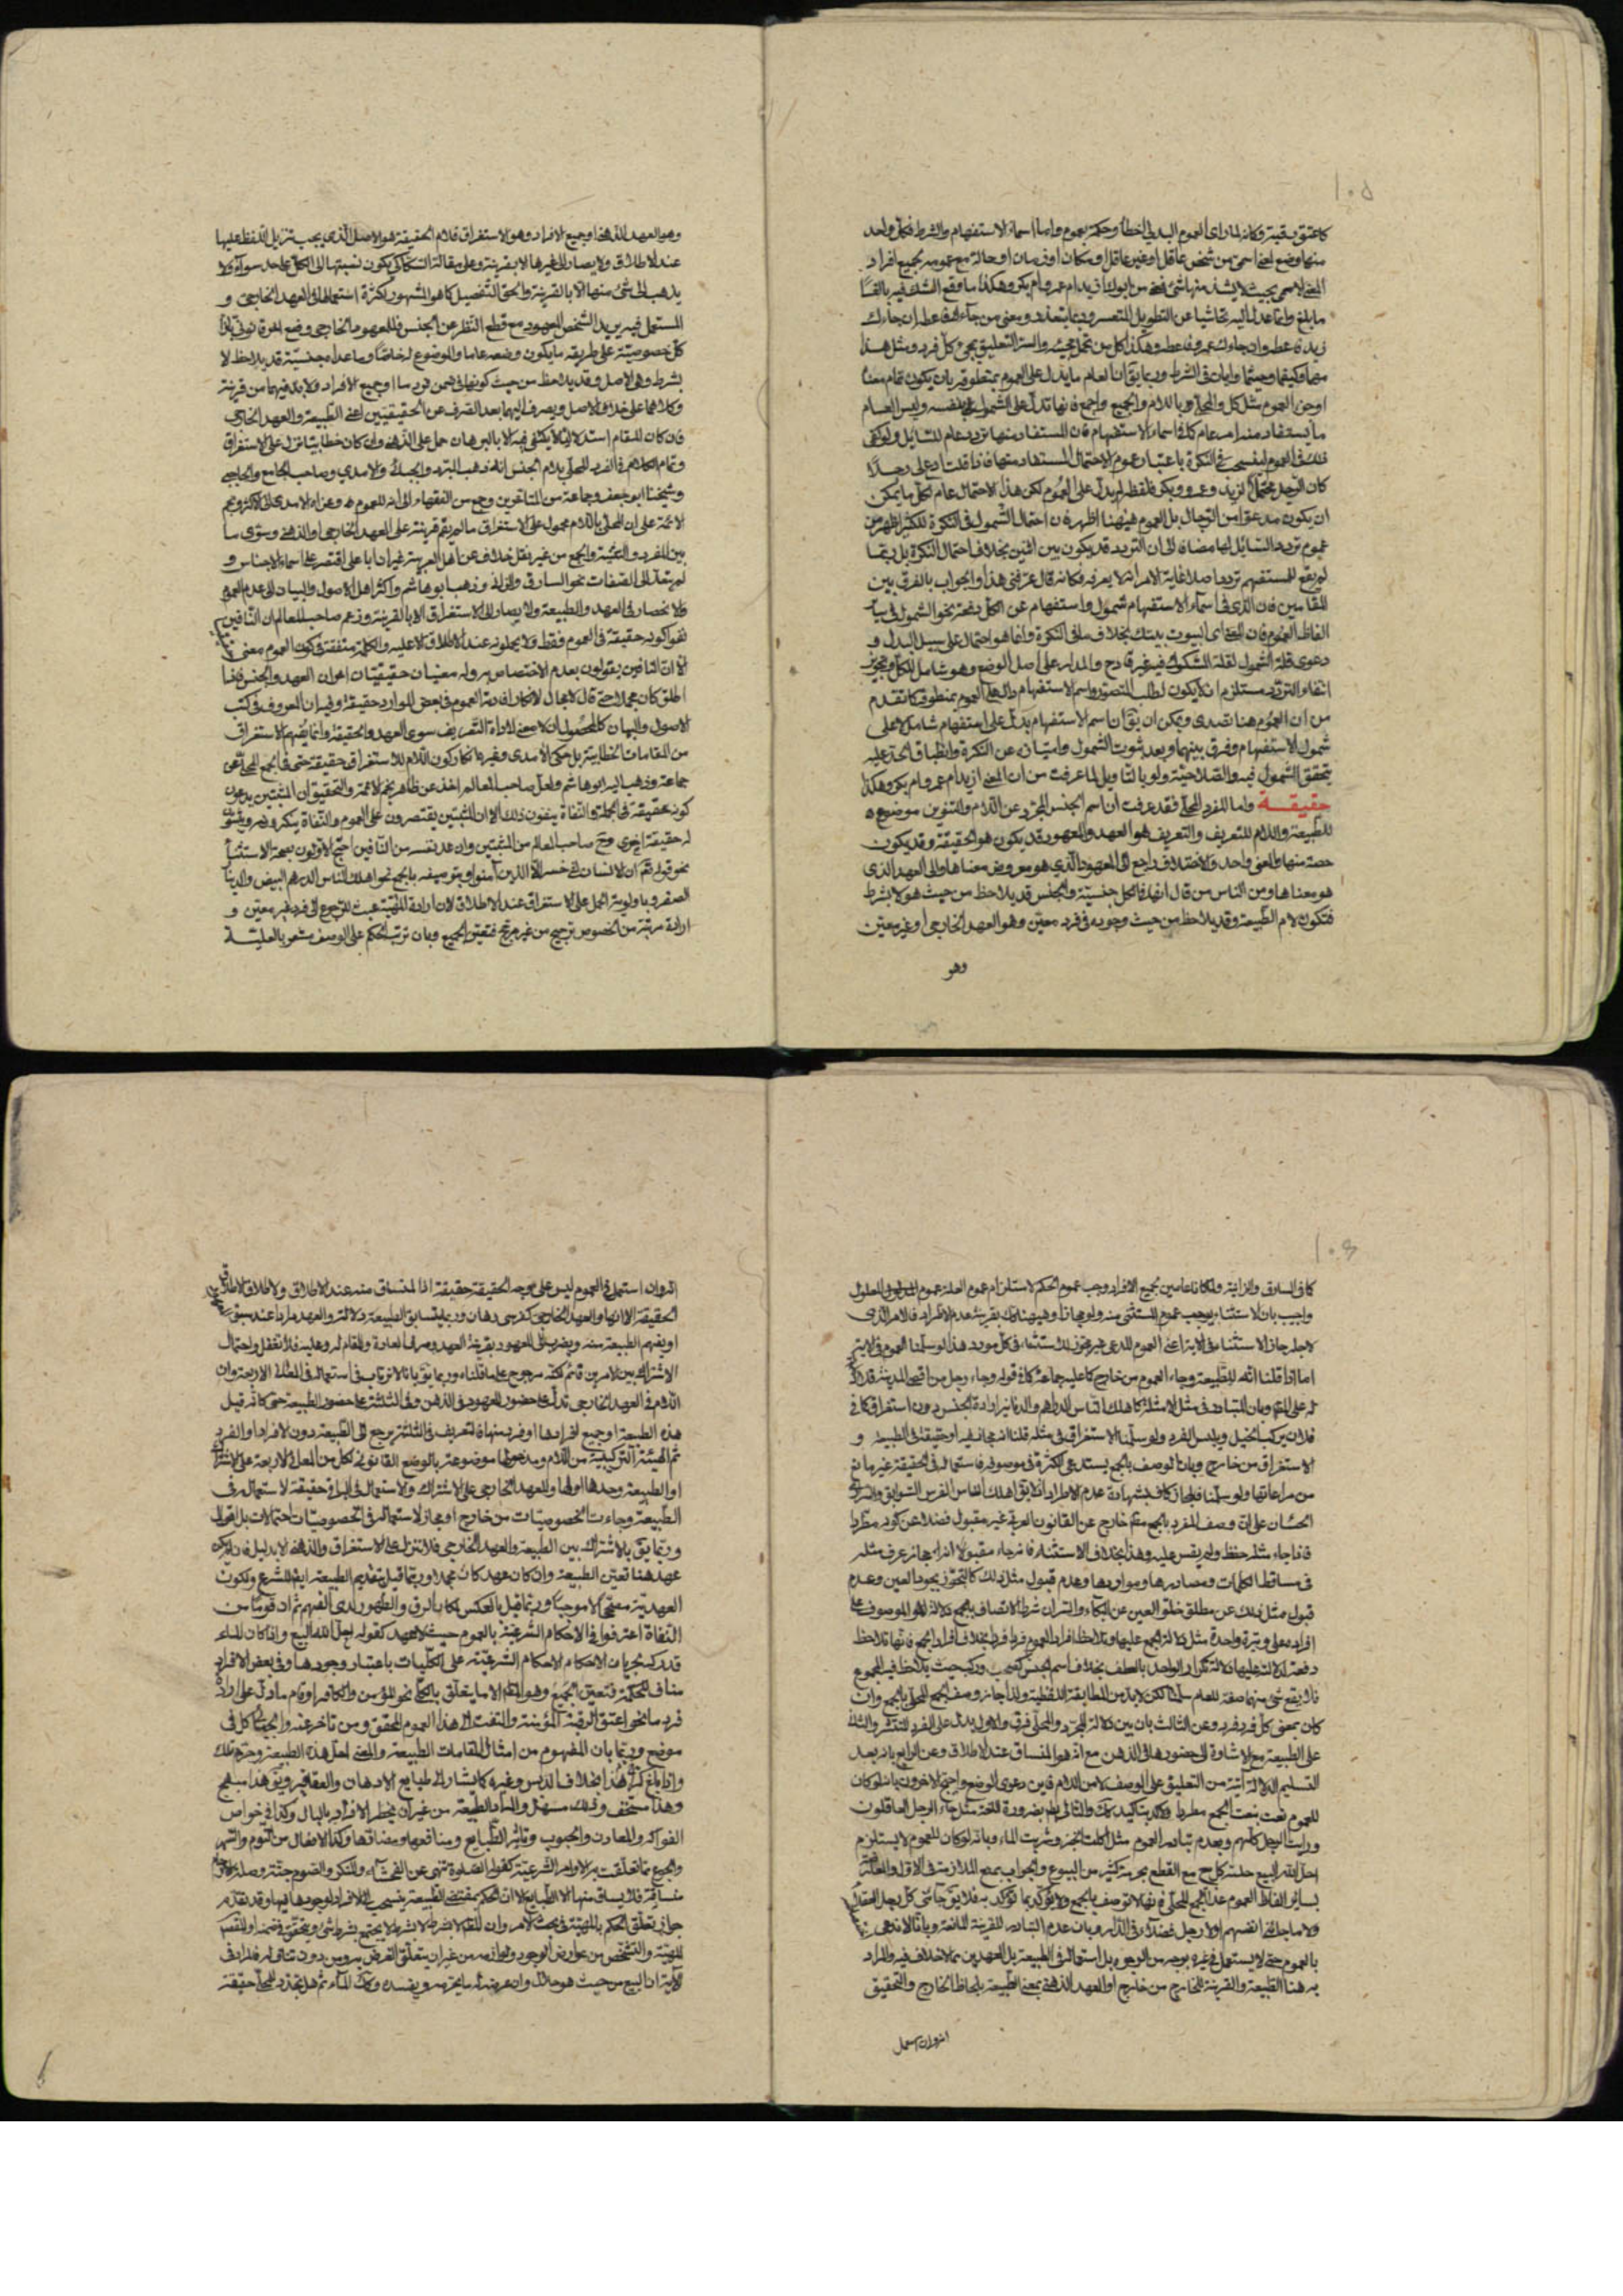 ١٠٥
كاعتق رقبة وكانه لما رأى العموم البدلي اخطأ وحكمه بعموم واما اسماء الاستفهام والشرط فكل واحد
منها وضع لمعنى اسمى من شخص عاقل او غير عاقل او مكان او زمان او حالة مع عمومه بجميع افراد
المعنى الاسمى بحيث لا يشذ منها شئ فمعنى من ابوك ازيد ام عمرو ام بكر وهكذا ما وقع الشك فيه بالغا
ما بلغ وانما عدل اليه تحاشيا عن التطويل المتعسر وربما يتعذر ومعنى من جاءك فاعطه ان جاءك
زيد فاعطه وان جاءك عمرو فاعطه وهكذا كل من تحتمل مجيئه والسر التعليق بمجئ كل فرد ومثل هذا
مهما وكيفما وحيثما واينما في الشرط وربما يق ان العام ما يدل على العموم بمنطوقه بان يكون تمام معناه
او جزئه العموم مثل كل والمحلى باللام والجميع واجمع فانها تدل على الشمول بنفسه وليس العام
ما يستفاد منه امر عام كما في اسماء الاستفهام فان المستفاد منها تردد عام للسائل ولو كفى
ذلك في العموم لدخل فيه النكرة باعتبار عموم الاحتمال المستفاد منها فاذا قلت ادع لي رجلا
كان الرجل محتملا لزيد وعمرو وبكر فلفظه لم يدل على العموم لكن هذا الاحتمال عام لكل ما يمكن
ان يكون مدعوا من الرجال بل العموم هيهنا اظهر فان احتمال الشمول في النكرة للكثير اظهر من
عموم تردد السائل لها مضافا الى ان التردد قد يكون بين اثنين بخلاف احتمال النكرة بل ربما
لم يقع للمستفهم تردد اصلا غاية الامر انه لا يعرفه فكانه قال عرفني هذا والجواب بالفرق بين
المقامين فان الذي في اسماء الاستفهام شمول واستفهام عن الكل دفعة نحو الشمول في سائر
الفاظ العموم فان معنى اي البيوت بيتك بخلاف ما في النكرة وانما هو احتمال على سبيل البدل و
دعوى قلة الشمول لقلة الشكوك فيه غير قادح والمدار على اصل الوضع وهو شامل للكل وتجويز
انتفاء التردد مستلزم ان لا يكون لطلب التصور واسم الاستفهام دال على العموم بمنطوقه كما تقدم
من ان العموم هنا قصدي ويمكن ان يق ان اسم الاستفهام يدل على استفهام شامل لا على
شمول الاستفهام وفرق بينهما وبعد ثبوت الشمول وامتيازه عن النكرة وانطباق الحد عليه
يتحقق الشمول فيه والصلاحية ولو بالتاويل لما عرفت من ان المعنى ازيد ام عمرو ام بكر وهكذا
حقيقة واما المفرد المحلى فقد عرفت ان اسم الجنس المجرد عن اللام والتنوين موضوع
للطبيعة واللام للتعريف والتعريف هو العهد والمعهود قد يكون هو الحقيقة وقد يكون
حصة منها والمعنى واحد والاختلاف راجع الى المعهود الذي هو معروض معناها والى العهد الذي
هو معناها ومن الناس من قال انها في الكل جنسية والجنس قد يلاحظ من حيث هو لا بشرط
فتكون لام الطبيعة وقد يلاحظ من حيث وجوده في فرد معين وهو العهد الخارجي او غير معين
وهو
وهو العهد الذهني او جميع الافراد وهو الاستغراق فلام الحقيقة هو الاصل الذي يجب تنزيل اللفظ عليها
عند الاطلاق ولا يصار الى غيرها الا بقرينة وعلى مقالة السكاكي يكون نسبتها الى الكل على حد سواء ولا
يذهب الى شئ منها الا بالقرينة والحق التفصيل كما هو المشهور لكثرة استعمالها في العهد الخارجي و
المستعمل فيه يريد الشخص المعهود مع قطع النظر عن الجنس فللمعهود الخارجي وضع اخر قانوني بازاء
كل خصوصية على طريقة ما يكون وضعه عاما والموضوع له خاصا وما عداه جنسية قد يلاحظ لا
بشرط وهي الاصل وقد يلاحظ من حيث كونها في ضمن فرد ما او جميع الافراد ولا بد فيهما من قرينة
وكلاهما على خلاف الاصل ويصرف اليهما بعد الصرف عن الحقيقتين اعني الطبيعة والعهد الخارجي
فان كان المقام استدلاليا لا يكتفى فيه الا بالبرهان حمل على الذهني وان كان خطابيا نزل على الاستغراق
وتمام الكلام في المفرد المحلى بلام الجنس انه ذهب المبرد والجبائي والامدي وصاحب الجامع والحاجبي
وشيخنا ابو جعفر وجماعة من المتاخرين وجمع من الفقهاء الى انه للعموم وعزاه الامدي للاكثر ونجم
الائمة على ان المحلى باللام محمول على الاستغراق ما لم يقم قرينة على العهد الخارجي او الذهني وسوى ما
بين المفرد والتثنية والجمع من غير نقل خلاف عن اهل العربية غير ان ابا علي اقتصر على اسماء الاجناس و
لم يتعد الى الصفات نحو السارق والزاني وذهب ابو هاشم واكثر اهل الاصول والبيان الى عدم العموم
والانحصار في العهد والطبيعة ولا يصار الى الاستغراق الا بالقرينة وزعم صاحب المعالم ان النافين
نفوا كونه حقيقة في العموم فقط ولا يحملونه عند الاطلاق الا عليه والكلمة متفقة في كون العموم معنى
لا ان النافين يقولون بعدم الاختصاص به وله معنيان حقيقيان اخران العهد والجنس فاذا
اطلق كان مجملا حتى قال لا مجال لانكار افادته العموم في بعض الموارد حقيقة وفيه ان المعروف في كتب
الاصول والبيان كالمحصول ان لا معنى لاداة التعريف سوى العهد والحقيقة وانما يفهم الاستغراق
من المقامات الخطابية بل حكى الامدي وغيره انكار كون اللام للاستغراق حقيقة حتى في الجمع المحلى عن
جماعة وذهب اليه ابو هاشم ولعل صاحب المعالم اخذ عن ظاهر نجم الائمة والتحقيق ان المثبتين يدعون
كونه حقيقة في الجملة والنفاة ينفون ذلك الا ان المثبتين يقتصرون على العموم والنفاة ينكرونه ويثبتون
له حقيقة اخرى وح صاحب المعالم من المثبتين وان عد نفسه من النافين احتج الاولون بصحة الاستثناء
نحو قوله تعالى ان الانسان لفي خسر الا الذين آمنوا وبتوصيفه بالجمع نحو اهلك الناس الدرهم البيض والدينار
الصفر وباولوية الحمل على الاستغراق عند الاطلاق لان ارادة الماهية عبث للرجوع الى فرد غير معين و
ارادة مرتبة من الخصوص ترجيح من غير مرجح فتعين الجميع وبان ترتب الحكم على الوصف مشعر بالعلية
١٠٦
كما في السارق والزانية ولما كانا عامين لجميع الافراد وجب عموم الحكم لاستلزام عموم العلة عموم المعلول
واجيب بان الاستثناء يوجب عموم المستثنى منه ولو مجازا وهيهنا كك بقرينة عدم الاطراد فالامر الذي
لاجله جاز الاستثناء في الاية اعني العموم المدعى غير مجوز للاستثناء في كل مورد هذا لو سلمنا العموم في الاية
اما اذا قلنا انه للطبيعة وجاء العموم من خارج كما عليه جماعة كما في قوله وجاء رجل من اقصى المدينة فلا
له على المدعى وبان المتبادر في مثل الامثلة كاهلك الناس الدراهم والدنانير ارادة الجنس دون استغراق كما في
فلان يركب الخيل ويلبس الفرو ولو سلمنا الاستغراق في مثله قلنا انه مجاز فيه او حقيقة في الطبيعة و
الاستغراق من خارج وبان الوصف بالجمع يستدعي الكثرة في موصوفه فاستعماله في الحقيقة غير مانع
من مراعاتها ولو سلمنا فالمجاز كاف بشهادة عدم الاطراد اذ لا يق اهلك الناس الفرس السوابق والمراة
الحسان على ان وصف المفرد بالجمع معه خارج عن القانون العربي غير مقبول فضلا عن كونه مطردا
فاذا جاء مثله حفظ ولم يقس عليه وهذا بخلاف الاستثناء فانه جاء مقبولا اذ ليس لهم ان يعرف مثله
في مساقط الكلمات ومصادرها ومواردها وعدم قبول مثل ذلك كالتجوز بوجود العين وعدم
قبول مثل ذلك عن مطلق خلق العين عن البكاء والسر ان شرط الاتصاف بالجمع دلالة الموصوف على
افراده على وتيرة واحدة مثل دلالة الجمع عليها وملاحظة افراد العموم فردا فردا بخلاف افراد الجمع فانها تلاحظ
دفعة لدلالته عليها دلالة تكرار الواحد بالعطف بخلاف اسم الجنس كصحب وركب حيث يلاحظ فيه المجموع
فلا يقع شئ منها صفة للعام سلمنا لكن لا بد من المطابقة اللفظية ولذا جاز وصف الجمع المحلى بالجمع وان
كان بمعنى كل فرد فرد وعن الثالث بان بين دلالة المجرد والمحلى فرق والاول يدل على الفرد المنتشر والثاني
على الطبيعة مع الاشارة الى حضورها في الذهن مع انه هو المنساق عند الاطلاق وعن الرابع بانه بعد
التسليم الدلالة آتية من التعليق على الوصف لا من اللام فاين دعوى الوضع واحتج الاخرون بانه لو كان
للعموم نعت بنعت الجمع مطردا واكد بتاكيده كك والتالي بط بضرورة اللغة مثل جاء الرجل العاقلون
ورايت الرجل كلهم وبعدم تبادر العموم مثل اكلت الخبز وشربت الماء وبانه لو كان للعموم لاستلزم
احل الله البيع حلية كل بيع مع القطع بحرمة كثير من البيوع والجواب بمنع الملازمة في الاول والمعارضة
بسائر الفاظ العموم عدا الجمع المحلى فانها لا توصف بالجمع ولا تؤكد بما تؤكد به فلا يق جائني كل رجل العقلاء
ولا ما جائني انفسهم ولا رجل فضلاء في الدار وبان عدم التبادر للقرينة المانعة وبانا لا ندعي
بالعموم حتى لا يستعمل في غيره بوجه من الوجوه بل استعماله في الطبيعة بل العهدين مما لا خلاف فيه والمراد
به هنا الطبيعة والقرينة للخارج من خارج او العهد الذهني بمعنى الطبيعة بلحاظ الخارج والتحقيق
انه وان استعمل
انه وان استعمل في العموم ليس على وجه الحقيقة حقيقة اذ المنساق منه عند الاطلاق
الحقيقة الا انها والعهد الخارجي كفرسي رهان وربما يتسابق الطبيعة
او يفهم الطبيعة منه ويضرب الى المعهود بقرينة العهد ومراعاة العادة والمقام له وعليه فلا تغفل واحتمال
الاشتراك بين الامرين قائم لكنه مرجوح على ما قلناه وربما يق بانا لا نرتاب في استعماله في المعاني الاربعة وان
اللام في العهد الخارجي تدل على حضور المعهود في الذهن وفي الثلثة على حضور الطبيعة حتى كانه قيل
هذه الطبيعة او جميع افرادها او فرد منها فالتعريف في الثلثة يرجع الى الطبيعة دون الافراد او الفرد
ثم الهيئة التركيبية من اللام ومدخولها موضوعة بالوضع القانوني لكل من المعاني الاربعة على الاشتراك
او الطبيعة وحدها اولها وللعهد الخارجي على الاشتراك والاستعمال في الباقي حقيقة لاستعماله في
الطبيعة وجاءت الخصوصيات من خارج او مجاز لاستعماله في الخصوصيات احتمالات بل اقوال
وربما يق بالاشتراك بين الطبيعة والعهد الخارجي فلا تنزل على الاستغراق والذهني الا بدليل فان لم يكن
عهد هنا تعين الطبيعة وان كان عهد كان مجملا وربما قيل بتقديم الطبيعة ايضا للشرع ولكون
العهدية مصححا لا موجبا وربما قيل بالعكس لمكان العرف والظهور لدى الفهم ثم ان قوما من
النفاة اعترفوا في الاحكام الشرعية بالعموم حيث لا عهد كقوله احل الله البيع واذا كان الماء
قدر كر لجريان الاحكام الشرعية على الكليات باعتبار وجودها وفي بعض الافراد
مناف للحكمة فتعين الجميع وهو العام الا ما يتعلق بالكل نحو المؤمن والكافر او قام ما دل على ارادة
فرد ما نحو اعتق الرقبة المؤمنة والتفت الى هذا العموم المحقق ومن تاخر عنه والبحث في
موضع وربما بان المفهوم من امثال المقامات الطبيعة والمعنى احل هذه الطبيعة وحرم تلك
واذا بلغ كرا هذا بخلاف الدبس وغيره كما يشار الى طبايع الادهان والعقاقير ويق هذا مبهج
وهذا مستخف وذاك مسهل والمراد الطبيعة من غير ان يخطر الافراد بالبال وكذا في خواص
الفواكه والمعادن والحبوب وتاثير الطبايع ومنافعها ومضارها وكذا الافعال من النوم والسهر
والجوع مما تعلقت به الاوامر الشرعية كقوله الصلوة تنهى عن الفحشاء والمنكر والصوم جنة وصلة
منساقة فلا ينساق منها الا الطبايع الا ان الحكم بمقتضى الطبيعة ينسحب الى الافراد لوجودها فيها وقد تقدم
جواز تعلق الحكم بالماهية في مبحث الامر وان المقام لا بشرط لا بشرط لا يجتمع بشرط شئ ويتحقق في ضمنه والمقصود
الماهية والتشخص من عوارض الوجود ولوازمه من غير ان يتعلق الغرض به ومن دون تناوله فالمراد في
الاية ان البيع من حيث هو حلال وان عرض له ما يحرمه ويفسده وكك الماء ثم هل يتحدد للمحلى حقيقة